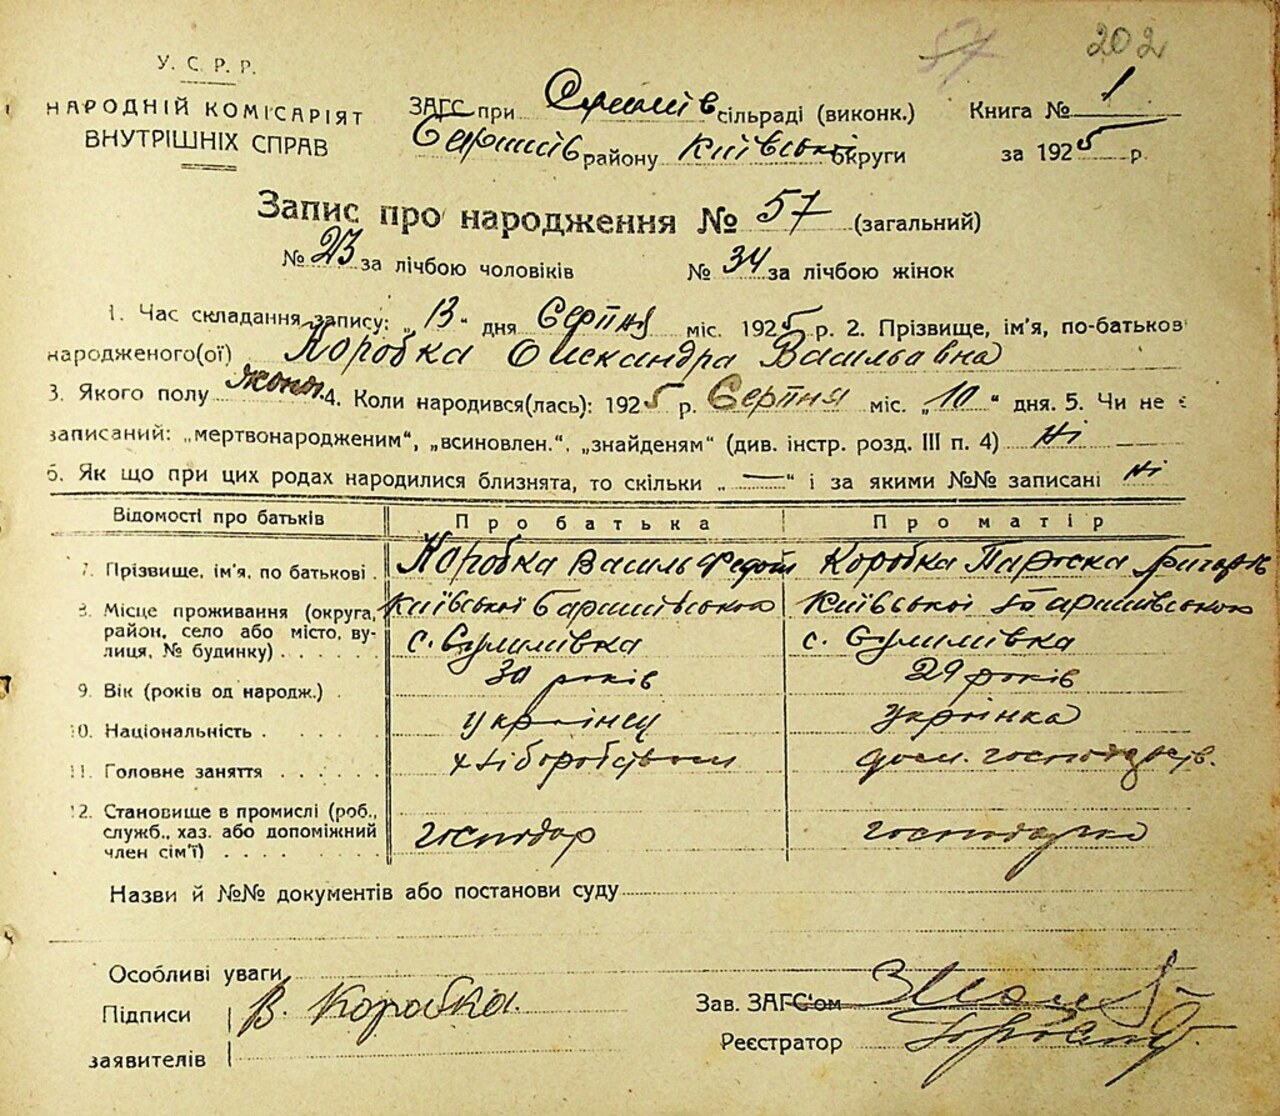 57 202
У. С. Р. Р.
НАРОДНІЙ КОМІСАРІЯТ
ВНУТРІШНІХ СПРАВ
ЗАГС при сільраді (виконк.)
району Київської округи
Книга № 1
за 1925 р.
Запис про народження № 57 (загальний)
№ 23 за лічбою чоловіків № 34 за лічбою жінок
1. Час складання запису: „13“ дня Серпня міс. 1925 р. 2. Прізвище, ім'я, по-батькові
народженого(ої) Коробка Олександра Васильовна
3. Якого полу 4. Коли народився(лась): 1925 р. Серпня міс. „10“ дня. 5. Чи не є
записаний: „мертвонародженим“, „всиновлен.“, „знайденям“ (див. інстр. розд. III п. 4) Ні
6. Як що при цих родах народилися близнята, то скільки „—“ і за якими №№ записані Ні
Відомості про батьків Про батька Про матір
7. Прізвище, ім'я, по батькові Коробка Василь Федот Коробка Параска Григор
8. Місце проживання (округа, Київської Баришівського Київської Баришівського
район, село або місто, ву- с. Сулимівка с. Сулимівка
лиця, № будинку)
9. Вік (років од народж.) 30 років 29 років
10. Національність українець українка
11. Головне заняття хліборобством дом. господарств.
12. Становище в промислі (роб.,
служб., хаз. або допоміжний господар господарка
член сім'ї)
Назви й №№ документів або постанови суду
Особливі уваги
Підписи В. Коробка.
заявителів
Зав. ЗАГС'ом
Реєстратор